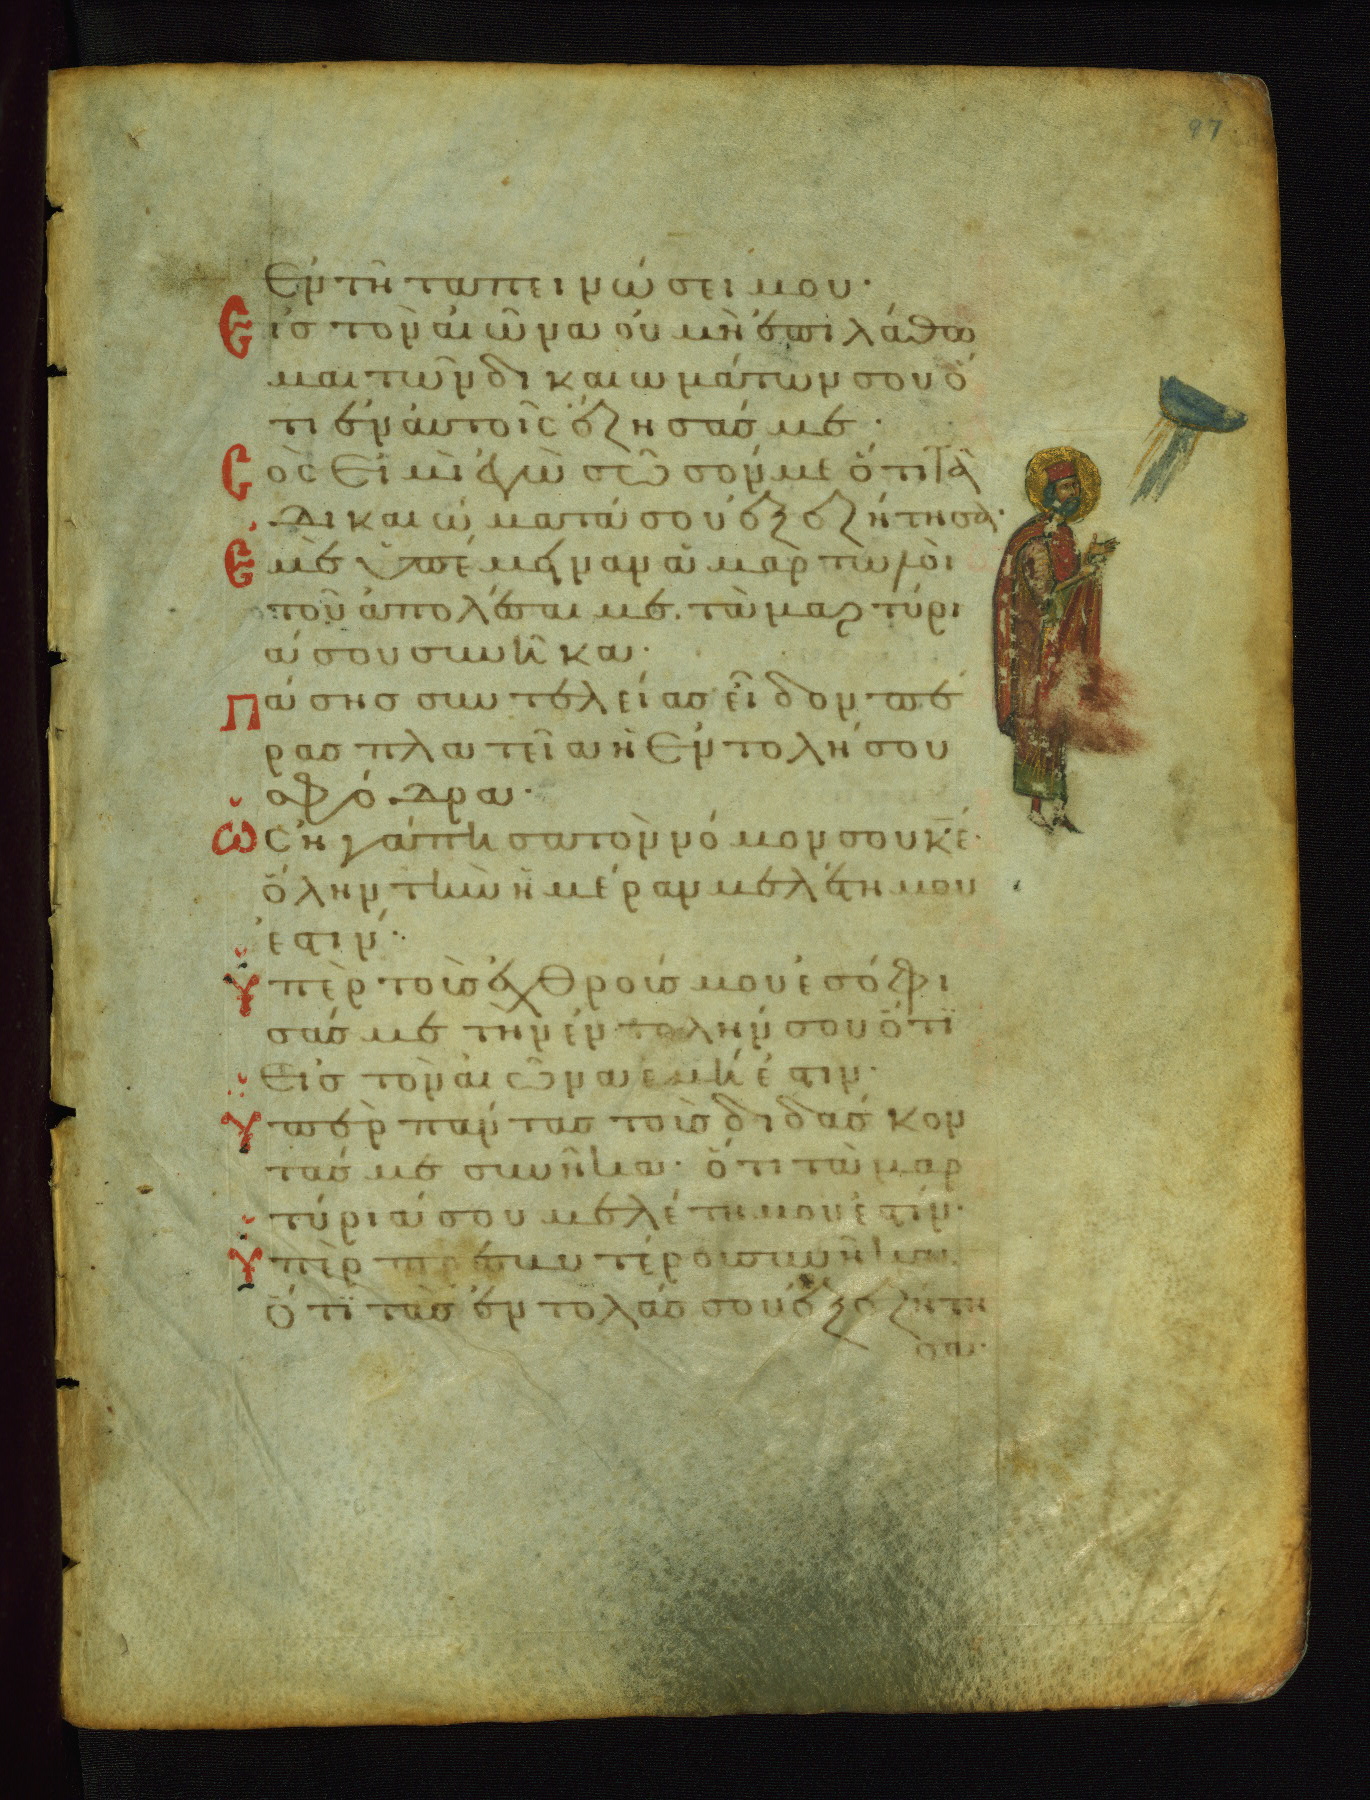 97
Ἐν τῆ ταπεινώσει μου·
Εἰσ τὸν αἰῶνα οὐ μὴ ἐπιλάθω
μαι τῶν δικαιωμάτων σου ὅ
τι ἐν αὐτοῖς ἔζησάσ με·
Σός εἰμι ἐγὼ σῶσόν με ὅτι τὰ
δικαιώματά σου ἐξεζήτησα·
Ἐμὲ ὑπέμειναν ἁμαρτωλοὶ
τοῦ ἀπολέσαι με. τὰ μαρτύρι
ά σου συνῆκα·
Πάσησ συντελείασ εἶδον πέ
ρασ πλατεῖα ἡ ἐντολή σου
σφόδρα·
Ὡς ἠγάπησα τὸν νόμον σου κ̅ε̅·
ὅλην τὴν ἡμέραν μελέτη μου
ἐστιν·
Ὑπὲρ τοὺσ ἐχθρούσ μου ἐσόφι
σάσ με τὴν ἐντολήν σου ὅτι
εἰσ τὸν αἰῶνα ἐμή ἐστιν·
Ὑπὲρ πάντασ τοὺσ διδάσκον
τάσ με συνῆκα· ὅτι τὰ μαρ
τύριά σου μελέτη μου ἐστίν·
Ὑπὲρ πρεσβυτέρουσ συνῆκα.
ὅτι τὰσ ἐντολάσ σου ἐξεζήτη
σα·